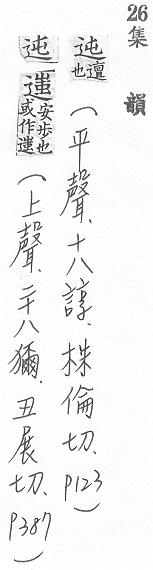 26
集韻
迍邅也(平聲、十八諄、株倫切、P123)
迍𨖷安步也或作𨖷(上聲、二十八獮、丑展切、P387)